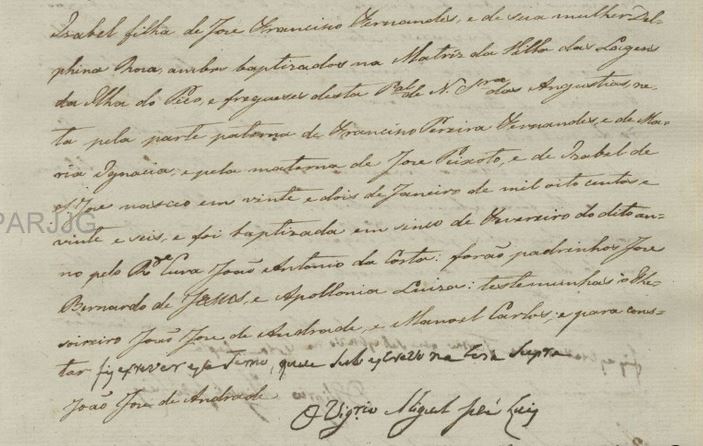 Izabel filha de Jose Francisco Fernandes, e de sua mulher Del=
phina Roza, ambos baptizados na Matriz da Villa das Lagens
da Ilha do Pico, e freguezes desta Par.al de N. Sra das Angustias, ne=
ta pela parte paterna de Francisco Pereira Fernandes, e de Ma=
ria Ignacia; e pela materna de Jose Peixoto, e de Izabel de
S. Jose nasceo em vinte e dois de Janeiro de mil oito centos e
vinte e seis, e foi baptizada em sinco de Fevereiro do dito an=
no pelo Rdo Cura João Antonio da Costa: forão padrinhos Jose
Bernardo de Jesus, e Apollonia Luiza: testemunhas o The=
soireiro João Jose de Andrade, e Manoel Carlos; e para cons=
tar fiz escrever este termo, que sub escrevo na era supra
João Jose de Andrade
O Vigrio Miguel José Luis
PARJJG